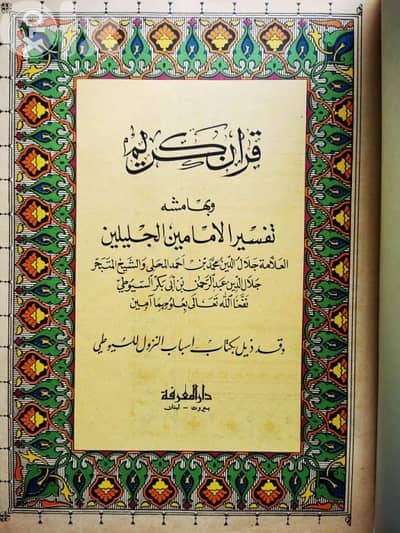 قرآن كريم
وبهامشه
تفسير الامامين الجليلين
العلامة جلال الدين محمد بن احمد المحلى والشيخ المتبحر
جلال الدين عبد الرحمن بن ابى بكر السيوطي
نفعنا الله تعالى بعلومهما آمين
وقد ذيل بكتاب اسباب النزول للسيوطي
دار المعرفة
بيروت - لبنان